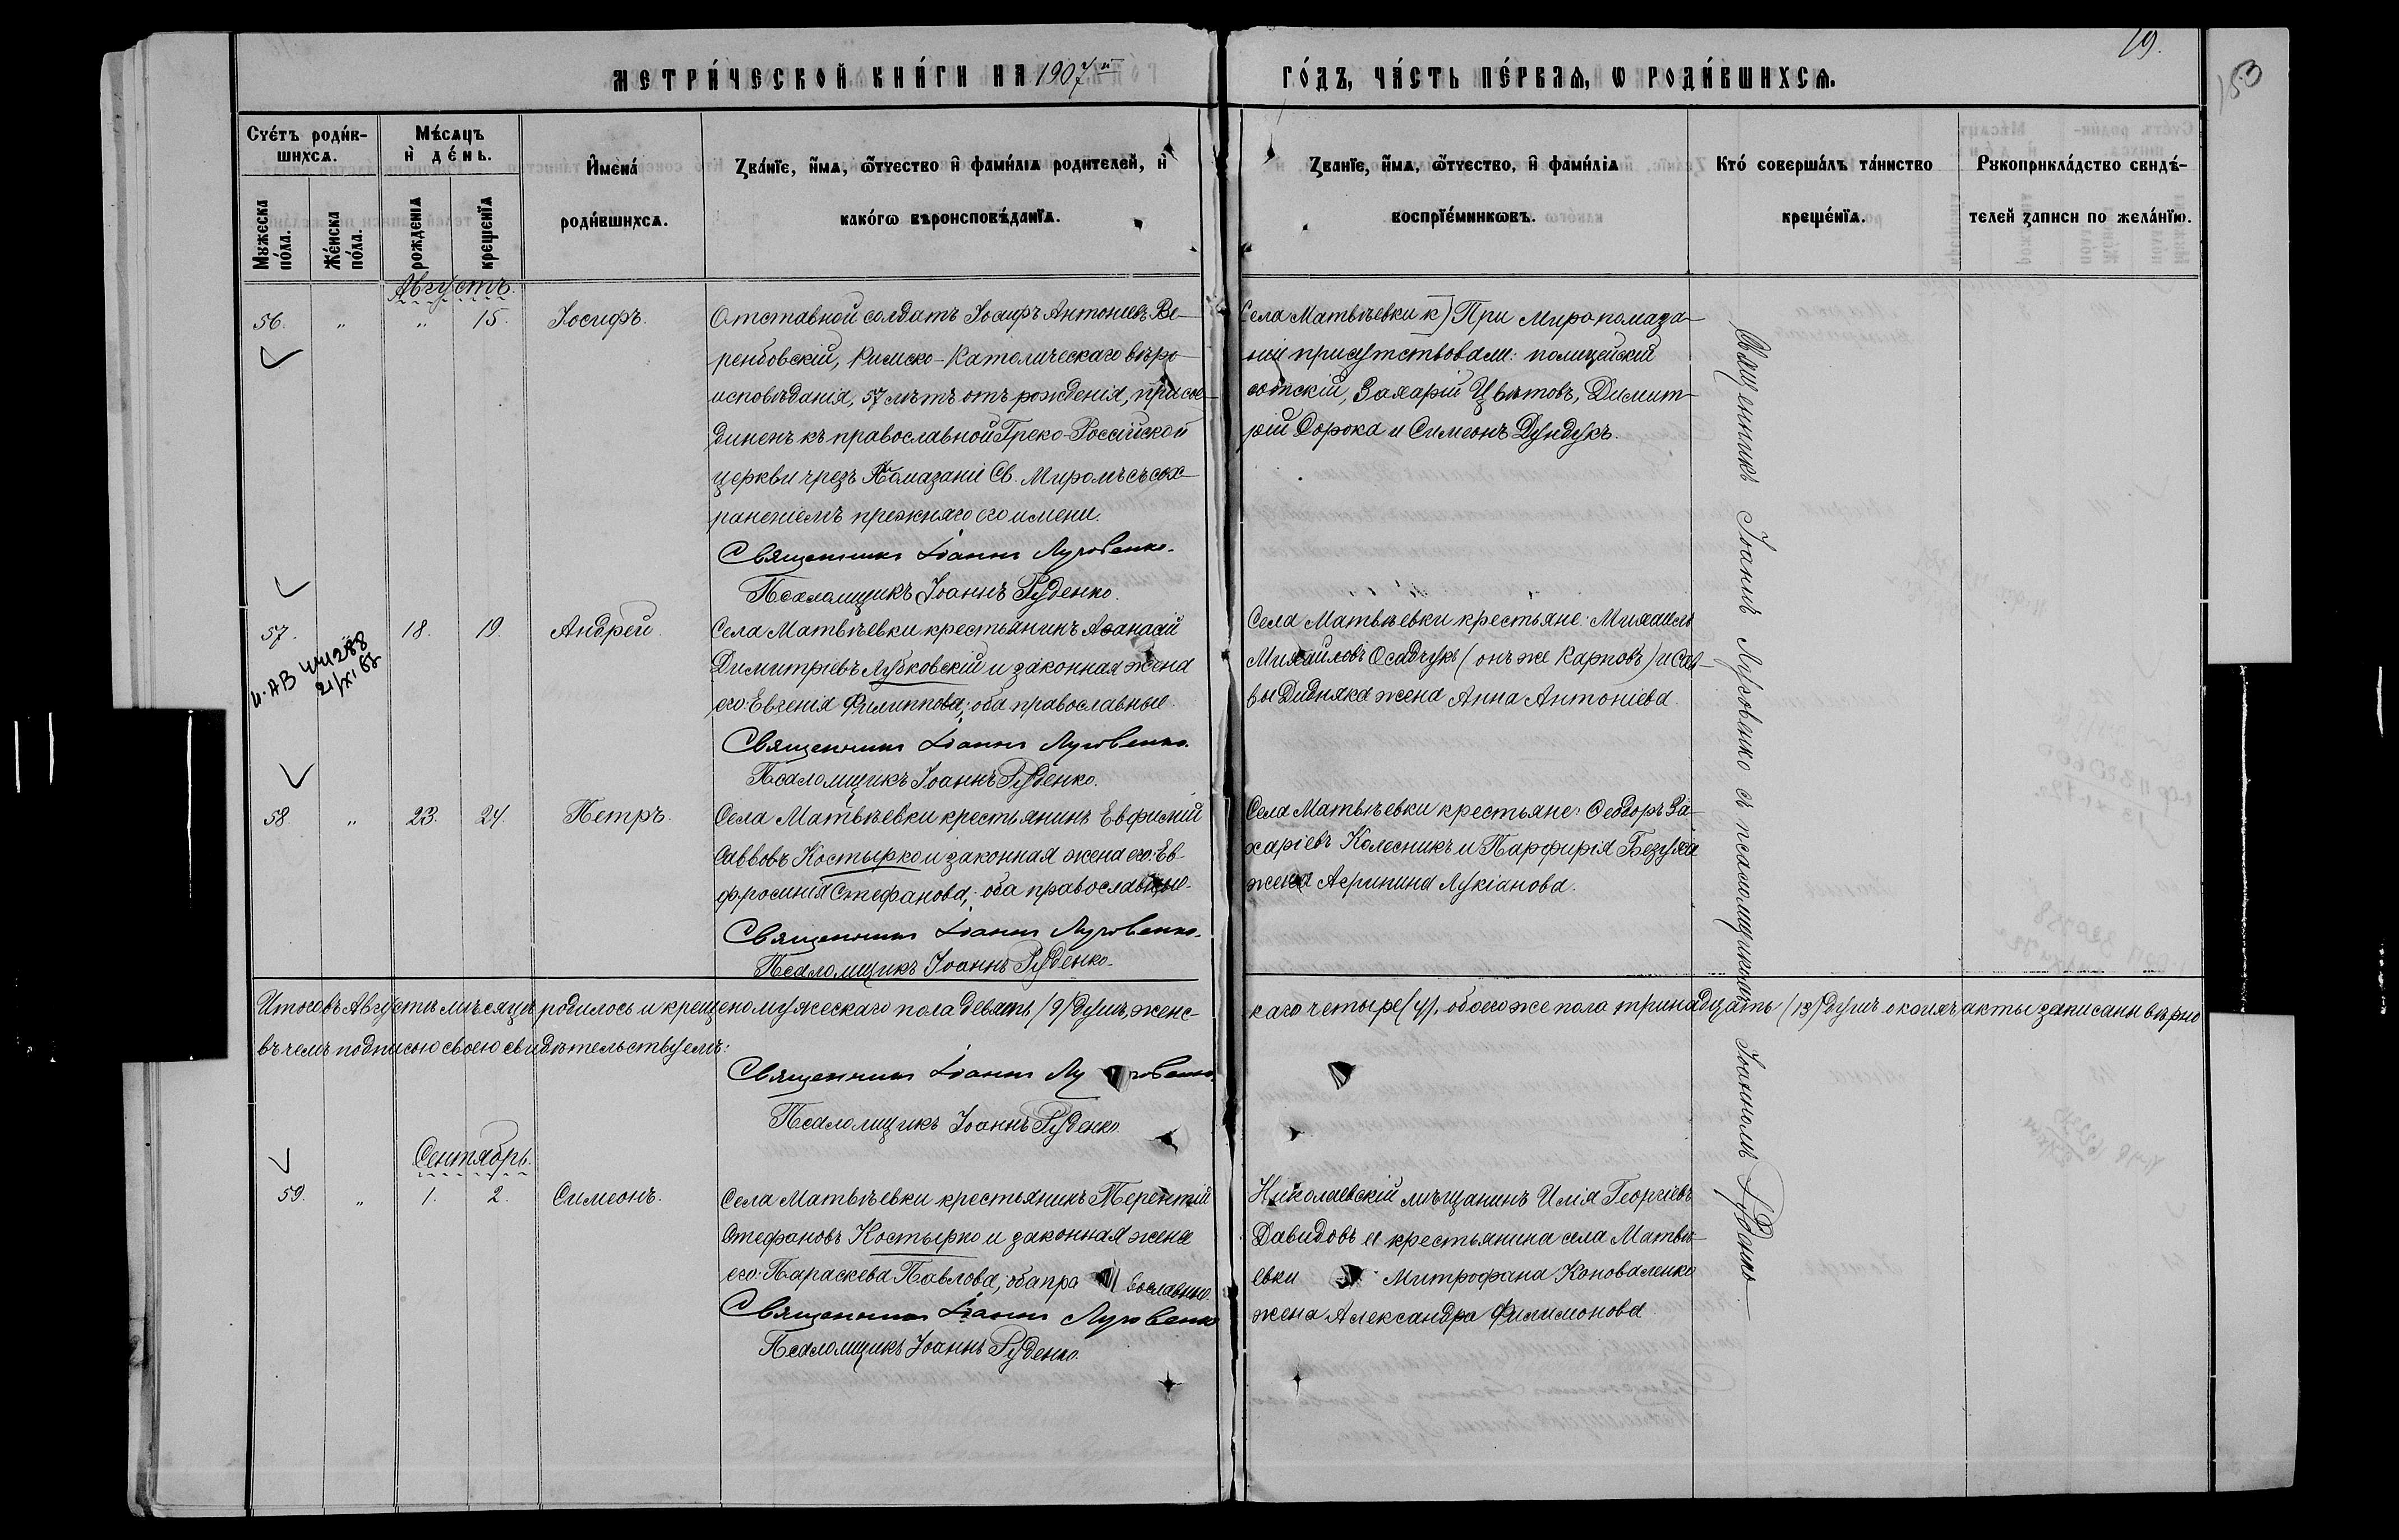 19.
153
МЕТРИ́ЧЕСКОЙ КНИ́ГИ НА 1907й ГО́ДЪ, ЧА́СТЬ ПЕ́РВАѦ, Ѡ РОДИ́ВШИХСѦ.
Сче́тъ роди́в-
шихсѧ.
Мꙋжеска
по́ла.
Же́нска
по́ла.
Мѣ́сѧцъ
и҆ де́нь.
рожденїѧ
крещенїѧ
И҆мена́
роди́вшихсѧ.
Зва́нїе, и҆́мѧ, ѻ҆́тчество и҆ фами́лїѧ родителей, и҆
како́гѡ вѣроисповѣ́данїѧ.
Зва́нїе, и҆́мѧ, ѻ҆́тчество, и҆ фами́лїѧ
воспрїе́мникѡвъ.
Кто́ соверша́лъ та́инство
креще́нїѧ.
Рꙋкоприкла́дство свидѣ́-
телей записи по жела́нїю.
Августъ.
56. " " 15. Іосифъ.
Отставной солдатъ Іосифъ Антоніевъ Ве-
ренбовскій, Римско-Католическаго вѣро-
исповѣданія, 57 лѣтъ отъ рожденія, присое-
диненъ къ православной Греко-Россійской
церкви чрезъ Помазаніе Св. Миромъ съ сох-
раненіемъ прежняго его имени.
Священникъ Іоаннъ Луговенко.
Псаломщикъ Іоаннъ Руденко.
Села Матвѣевки к) При миропомаза-
ніи присутствовали: полицейскій
сотскій, Захарій Цвѣтовъ, Димит-
рій Сорока и Симеонъ Дундукъ.
57. 18. 19. Андрей.
Села Матвѣевки крестьянинъ Аѳанасій
Димитріевъ Лубковскій и законная жена
его: Евгенія Филиппова; оба православные.
Священникъ Іоаннъ Луговенко.
Псаломщикъ Іоаннъ Руденко.
Села Матвѣевки крестьяне: Михаилъ
Михайловъ Осадчукъ (онъ же Карповъ) и Сав-
вы Дидняка жена Анна Антоніева.
58 " 23. 24. Петръ.
Села Матвѣевки крестьянинъ Евфимій
Саввовъ Костырко и законная жена его: Ев-
фросинія Стефанова; оба православные.
Священникъ Іоаннъ Луговенко.
Псаломщикъ Іоаннъ Руденко.
Села Матвѣевки крестьяне: Ѳеодоръ За-
харіевъ Колесникъ и Парфирія Безуха
жена Агрипина Лукіанова.
Священникъ Іоаннъ Луговенко съ псаломщикомъ Іоанномъ Руденко
Итого въ Августѣ мѣсяцѣ родилось и крещено мужескаго пола девять (9) душъ, женс-
каго четыре (4), обоего же пола тринадцать (13) душъ о коихъ акты записаны вѣрно
въ чемъ подписью своею свидѣтельствуемъ:
Священникъ Іоаннъ Луговенко.
Псаломщикъ Іоаннъ Руденко.
Сентябрь.
59. " 1. 2. Симеонъ.
Села Матвѣевки крестьянинъ Терентій
Стефановъ Костырко и законная жена
его: Параскева Павлова; оба православные.
Священникъ Іоаннъ Луговенко
Псаломщикъ Іоаннъ Руденко.
Николаевскій мѣщанинъ Илія Георгіевъ
Давидовъ и крестьянина села Матвѣ-
евки Митрофана Коноваленко
жена Александра Филимонова.